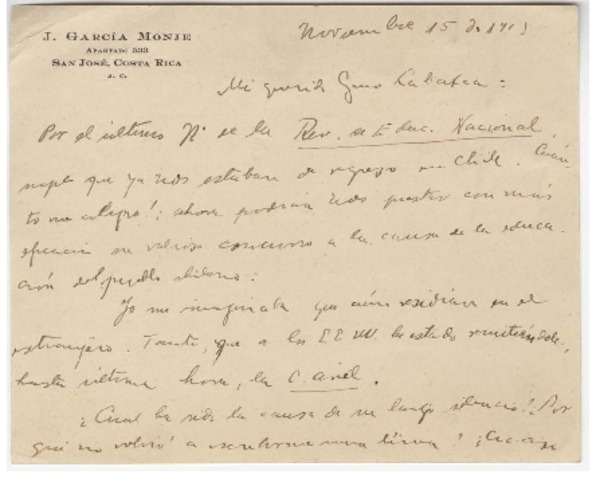 J. García Monje
Apartado 533
San José, Costa Rica
A. C.
Noviembre 15 de 1913
Mi querido Gmo Labarca:
Por el último Nº de la Rev. de Educ. Nacional,
supe que ya Uds estaban de regreso en Chile. Cuán-
to me alegro!; ahora podrán Uds prestar con más
eficacia su valioso concurso a la causa de la educa-
ción del pueblo chileno.
Yo me imaginaba que aún residían en el
extranjero. Tanto, que a los EE UU. he estado remitiéndole,
hasta última hora, la C. Ariel.
¿Cuál ha sido la causa de su largo silencio? ¿Por
qué no volvió a escribirme una línea? ¿Acaso